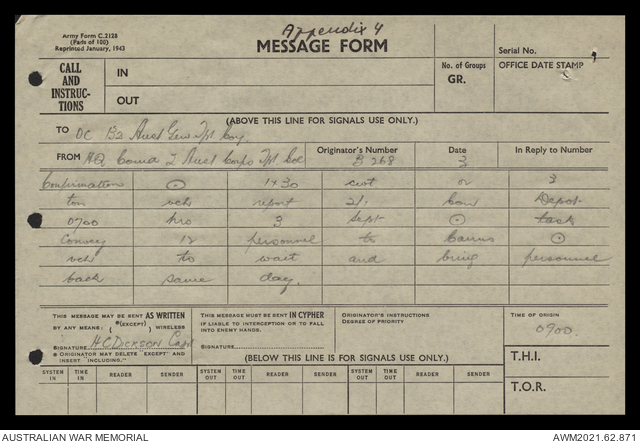 Army Form C.2128
(Pads of 100)
Reprinted January, 1943
Appendix 4
MESSAGE FORM
Serial No.
CALL AND INSTRUC-TIONS
IN
OUT
No. of Groups
GR.
OFFICE DATE STAMP
(ABOVE THIS LINE FOR SIGNALS USE ONLY.)
TO OC Aust Gen Tpt Coy
FROM HQ Comd Aust Corps Tpt Col
Originator's Number
B 268
Date
3
In Reply to Number
Confirmation ⊙ 1430 3
ton veh report 2/1 Con Depot
0700 hrs 3 Sept ⊙ task
Convey 12 personnel to Cairns ⊙
veh to wait and bring personnel
back same day.
THIS MESSAGE MAY BE SENT AS WRITTEN
BY ANY MEANS, ( *(EXCEPT) ) WIRELESS
SIGNATURE H C DICKSON Capt
* ORIGINATOR MAY DELETE "EXCEPT" AND
INSERT "INCLUDING."
THIS MESSAGE MUST BE SENT IN CYPHER
IF LIABLE TO INTERCEPTION OR TO FALL
INTO ENEMY HANDS.
SIGNATURE
ORIGINATOR'S INSTRUCTIONS
DEGREE OF PRIORITY
TIME OF ORIGIN
0900.
(BELOW THIS LINE IS FOR SIGNALS USE ONLY.)
T.H.I.
T.O.R.
SYSTEM IN TIME IN READER SENDER SYSTEM OUT TIME OUT READER SENDER SYSTEM OUT TIME OUT READER SENDER
AUSTRALIAN WAR MEMORIAL
AWM2021.62.871